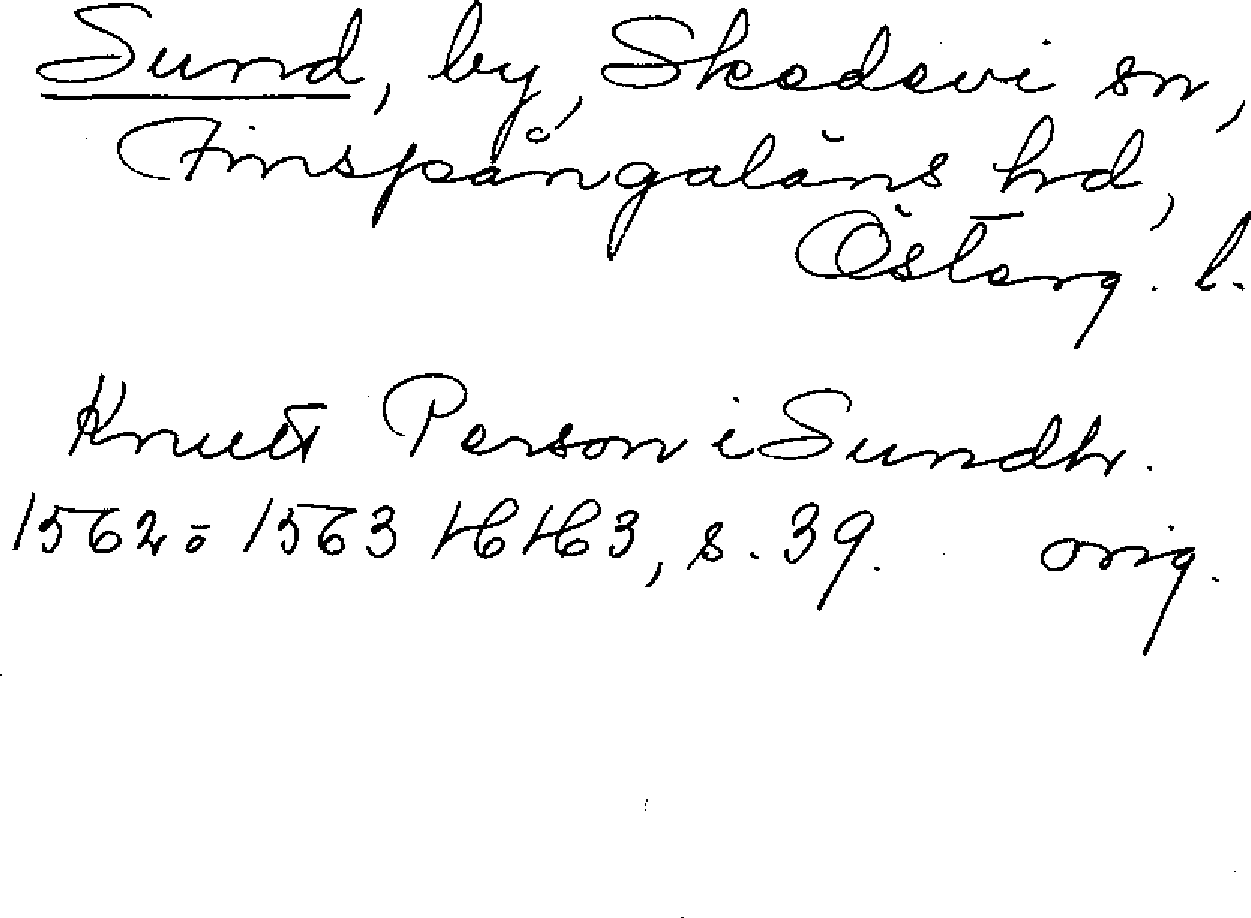 Sund, by, Skedevi sn,
Finspångaläns hd,
Österg. l.
Knutt Person i Sundh.
1562 = 1563 16163, s. 39. orig.